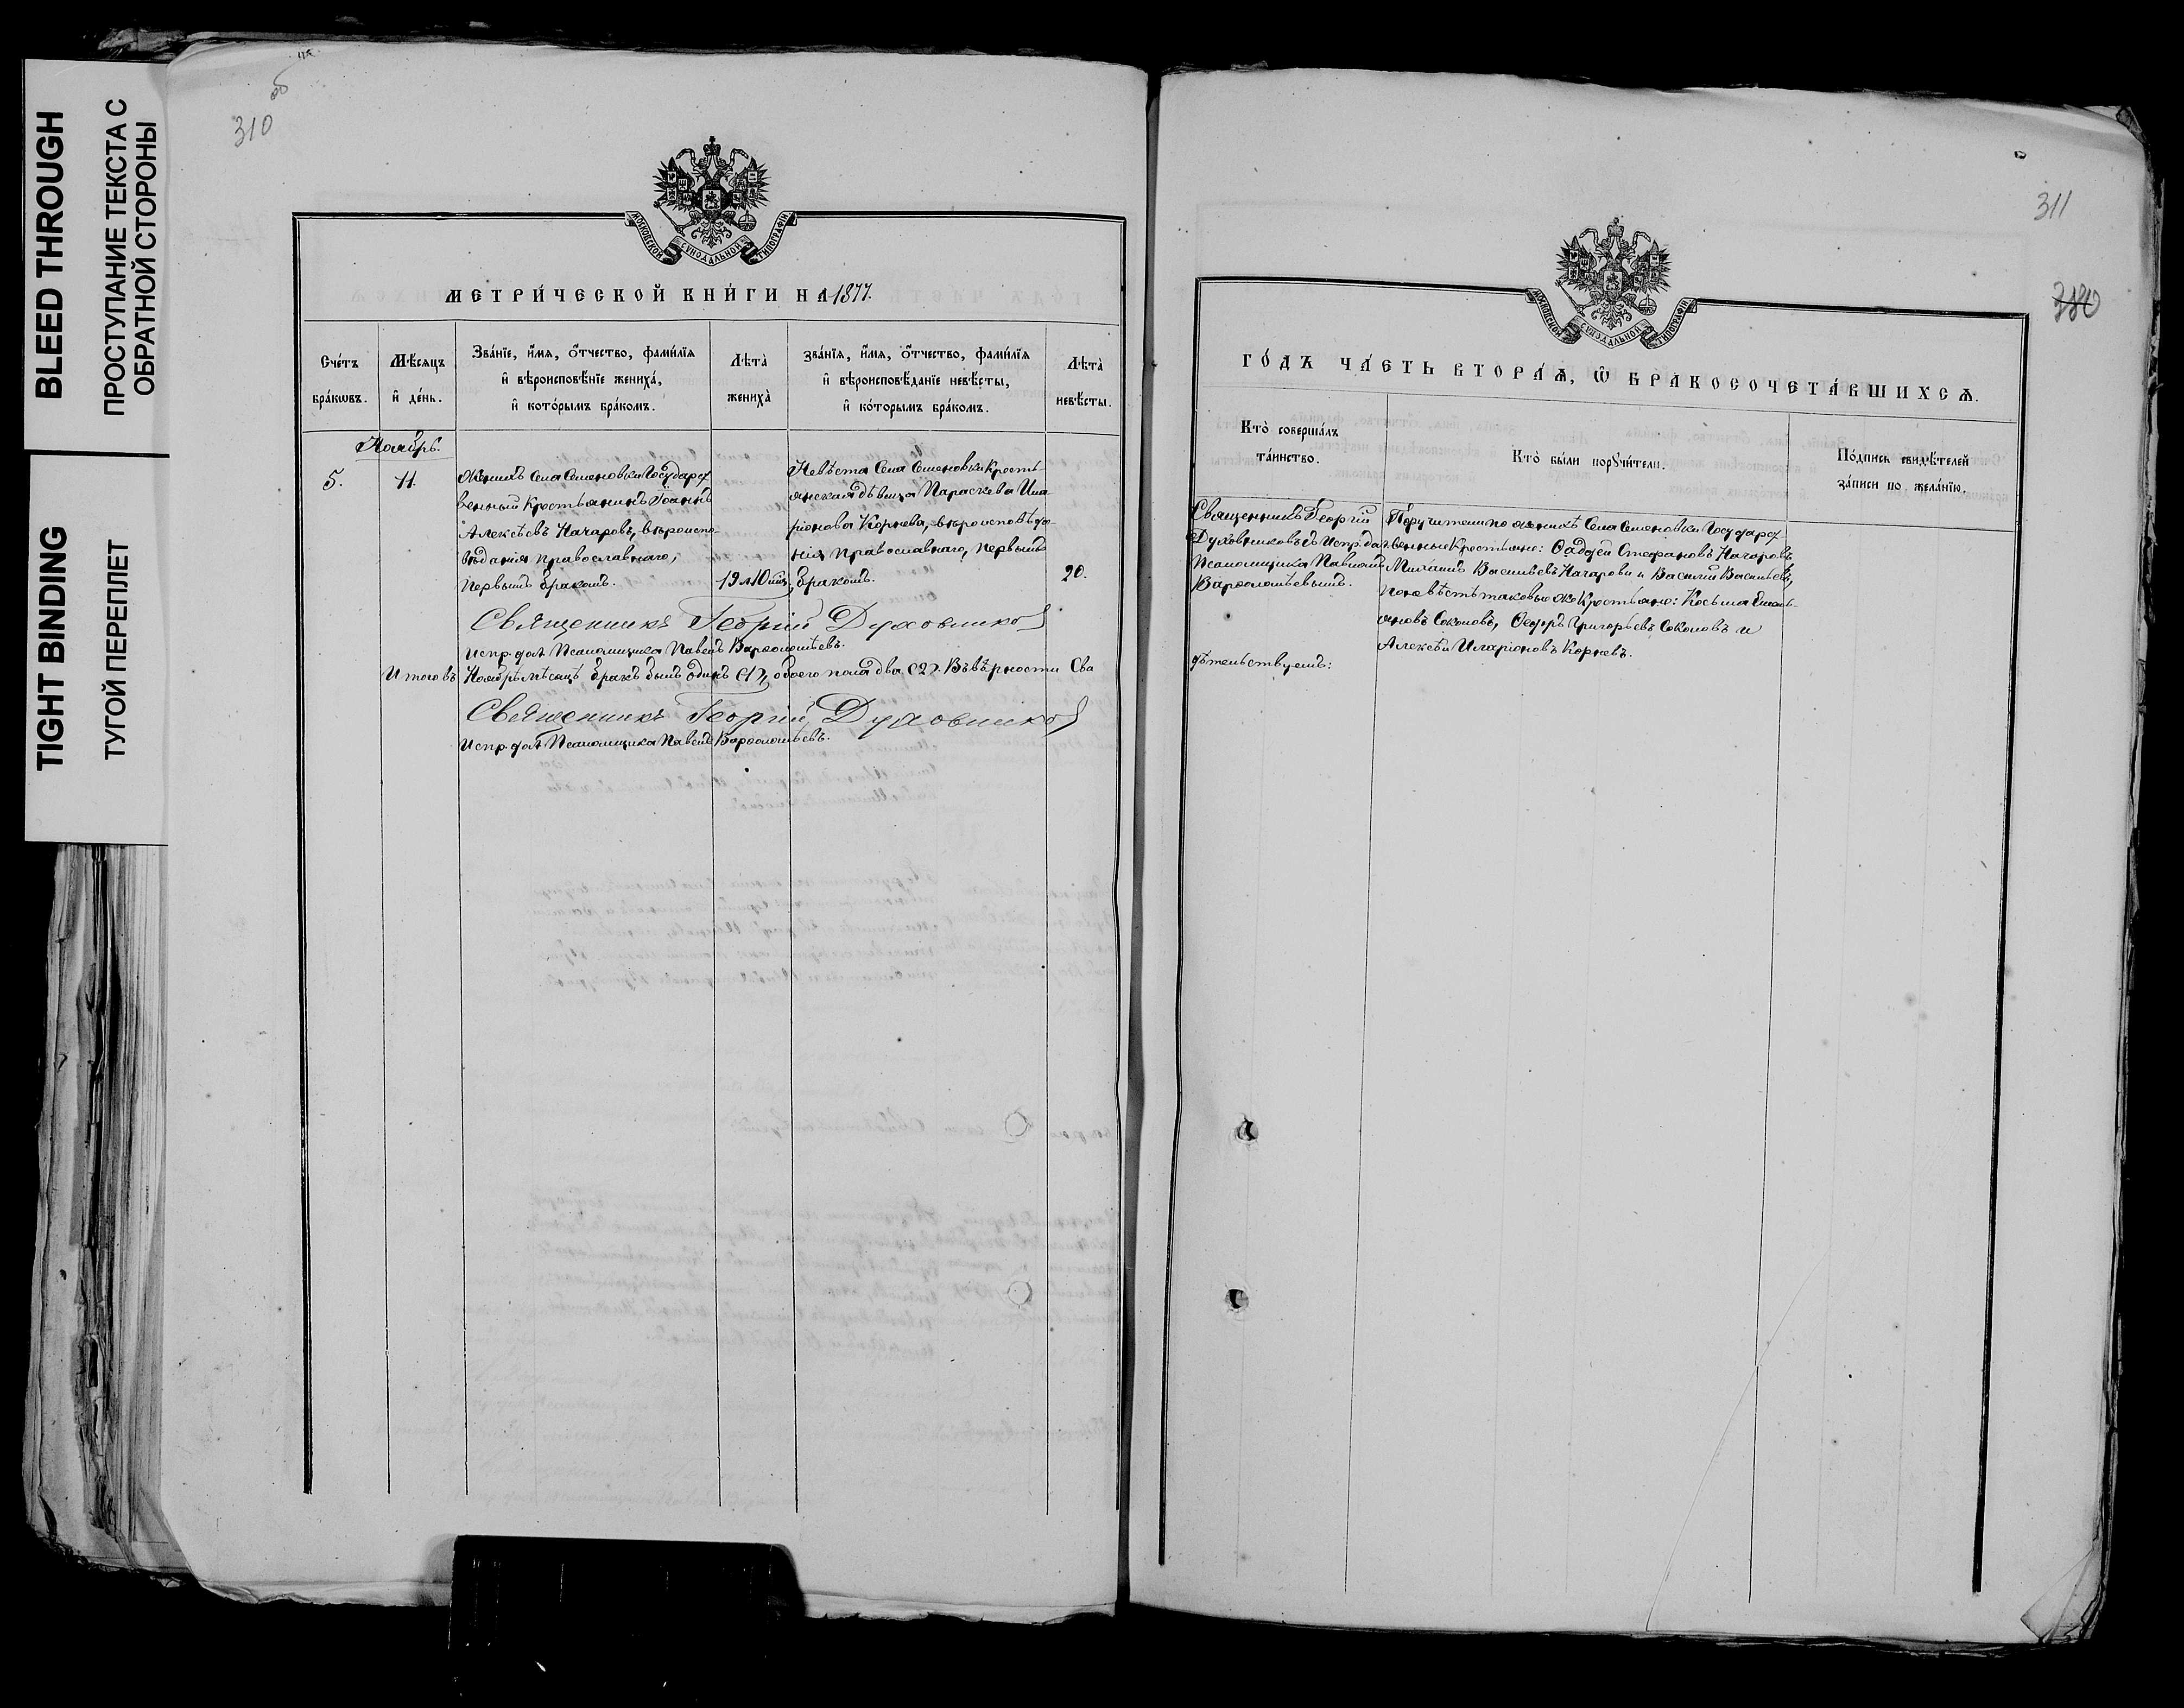 BLEED THROUGH
ПРОСТУПАНИЕ ТЕКСТА С
ОБРАТНОЙ СТОРОНЫ
TIGHT BINDING
ТУГОЙ ПЕРЕПЛЕТ
310 об
МОСКОВСКОЙ СѴНОДАЛЬНОЙ ТИПОГРАФІИ
МЕТРИ́ЧЕСКОЙ КНИ́ГИ НА 1877.
Сче́тъ
бра́кѡвъ.
Мѣ́сяцъ
и҆ де́нь.
Зва́нїе, и҆́мѧ, ѻ҆́тчество, фами́лїѧ
и҆ вѣроисповѣ́нїе жениха̀,
и҆ кото́рымъ бра́комъ.
Лѣ́та̀
жениха̀
зва́нїѧ, и҆́мѧ, ѻ҆́тчество, фами́лїѧ
и҆ вѣроисповѣ́данїе невѣ́сты,
и҆ ко́торымъ бра́комъ.
Лѣ́та̀
невѣ́сты.
Ноябрь.
5.
11.
Женихъ Села Семеновки Государст
венный Крестьянинъ Іоаннъ
Алексѣевъ Начаровъ, вѣроиспо-
вѣданія православнаго,
первымъ бракомъ.
19 л 10 мѣц
Невѣста Села Семеновки Кресть-
янская дѣвица Параскева Ила-
ріонова Корнева, вѣроисповѣда-
нія православнаго, первымъ
бракомъ.
20.
Священникъ Георгій Духовников
Испр. дол. Псаломщика Павелъ Варѳоломѣевъ.
Итого въ Ноябрѣ мѣсяцѣ бракъ былъ одинъ (1), обоего пола два (2). Въ вѣрности Сви
Священникъ Георгій Духовников
Испр. дол. Псаломщика Павелъ Варѳоломѣевъ.
311
380
МОСКОВСКОЙ СѴНОДАЛЬНОЙ ТИПОГРАФІИ
ГО́ДЪ ЧА́СТЬ ВТОРА́Ѧ, Ѡ҆ БРАКОСОЧЕТА́ВШИХСѦ.
Кто̀ соверша́лъ
та́инство.
Кто̀ бы́ли порꙋчи́тели.
По́дпись свидѣ́телей
за́писи по жела́нїю.
Священникъ Георгій
Духовниковъ съ Испр. дол.
Псаломщика Павломъ
Варѳоломѣевымъ.
Поручители по женихѣ Села Семеновки Государст
венные Крестьяне: Ѳаддей Стефановъ Начаровъ,
Михаилъ Васильевъ Начаровъ и Василій Васильевъ,
по невѣстѣ таковые же Крестьяне: Косьма Емель-
яновъ Соколовъ, Ѳеодръ Григорьевъ Соколовъ и
Алексѣй Иларіоновъ Корневъ.
дѣтельствуемъ: